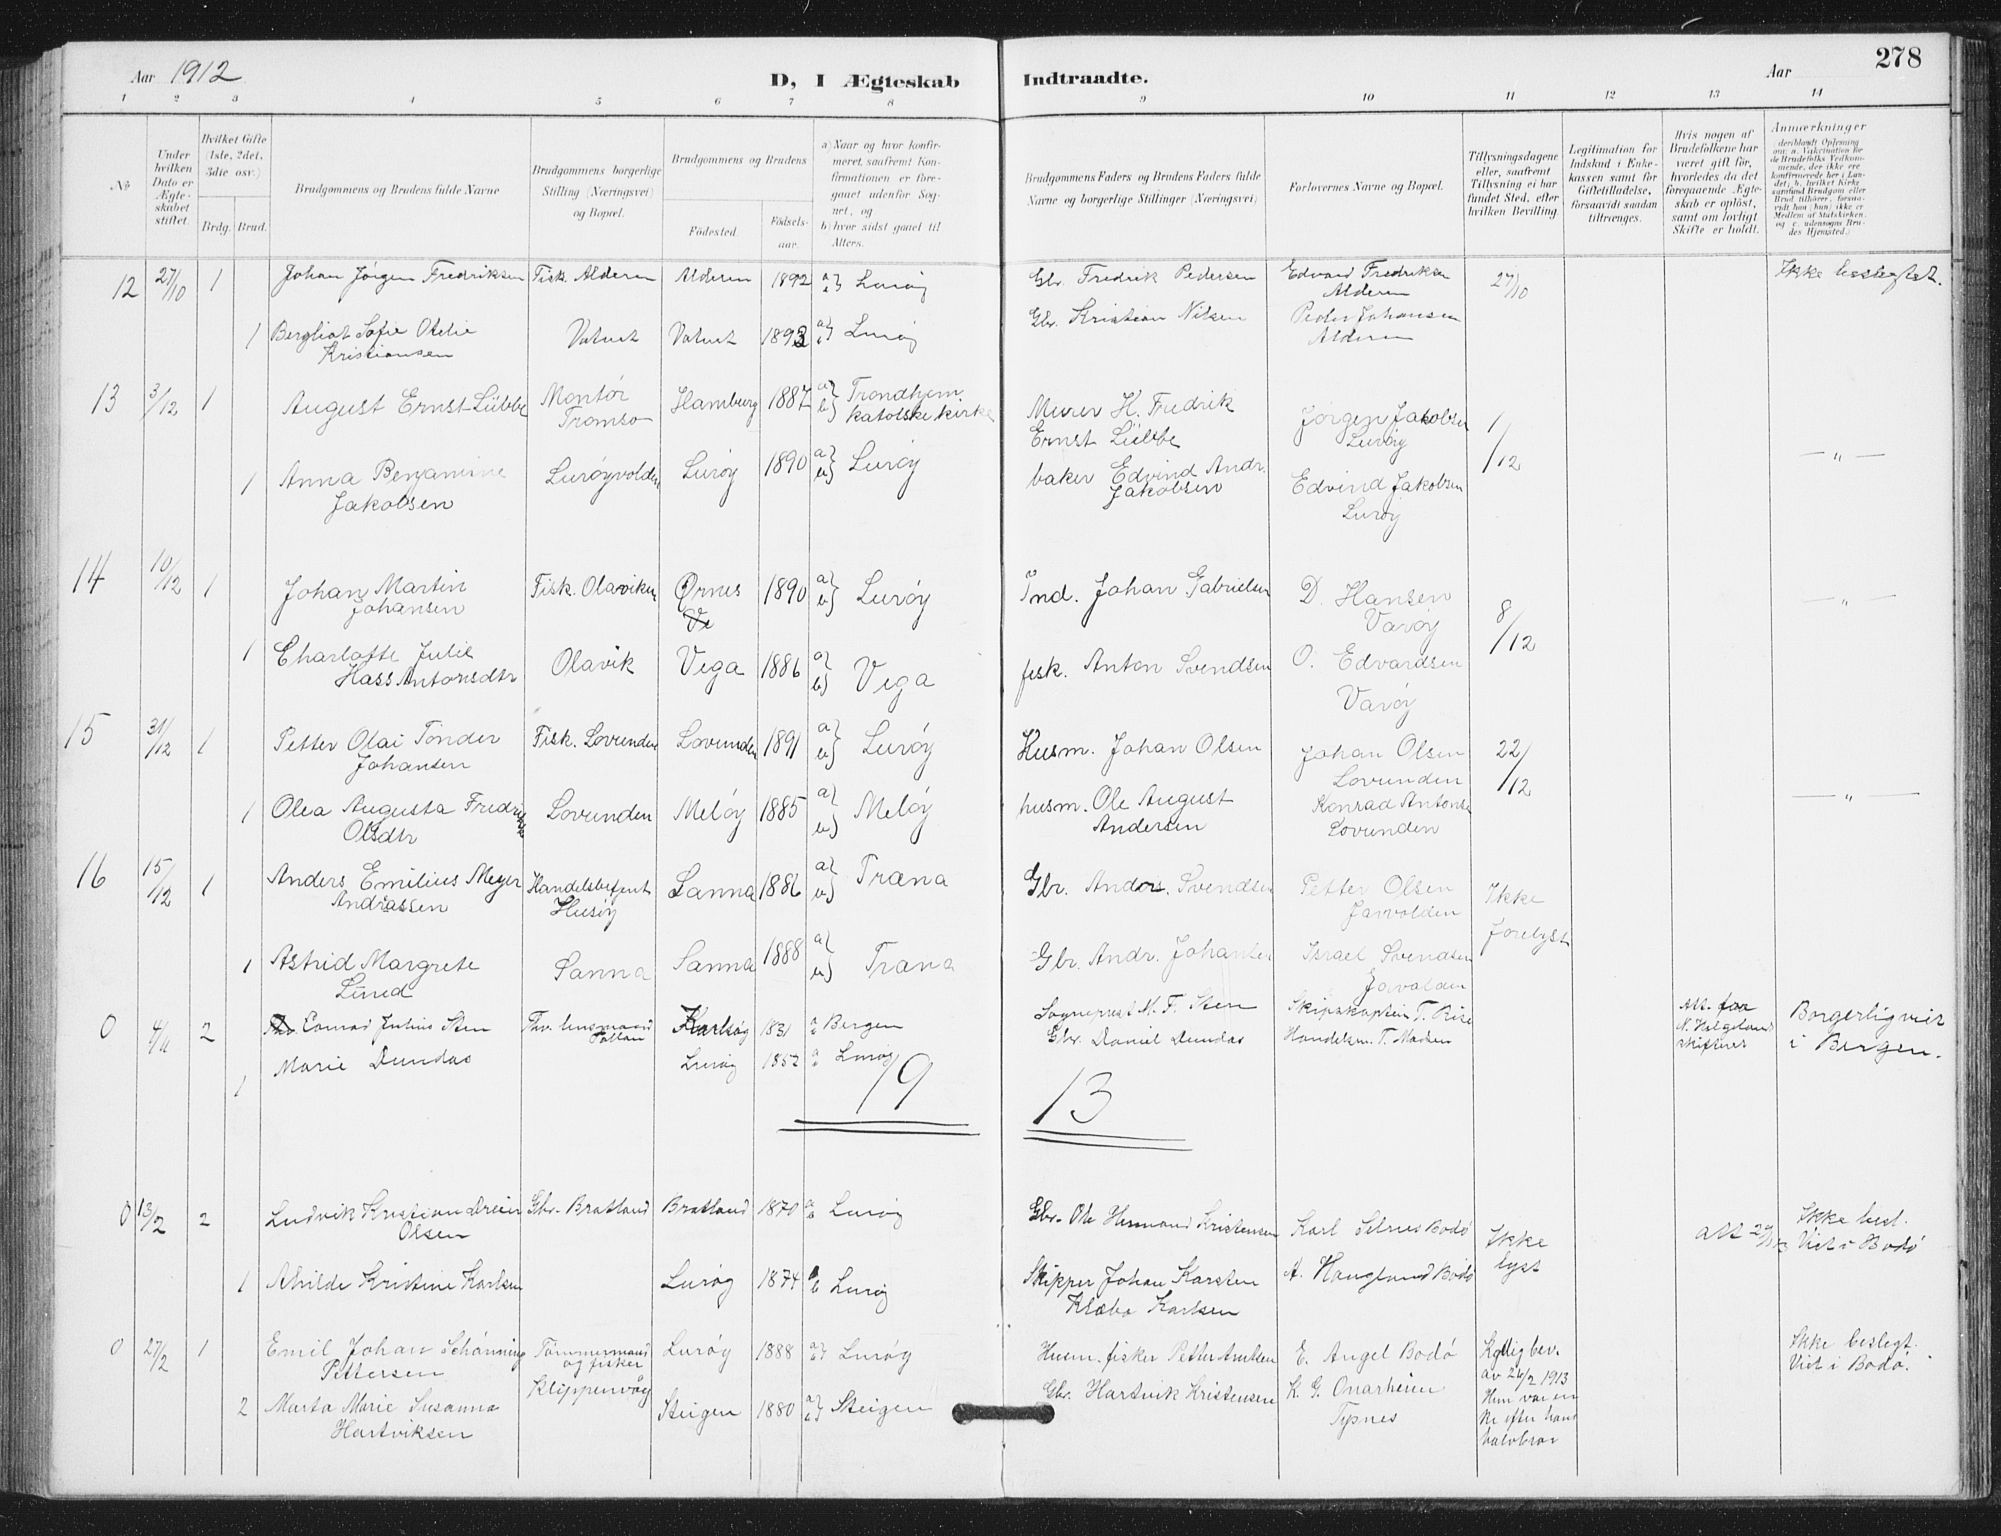 278
Aar 1912
D, I Ægteskab Indtraadte.
Aar
1 2 3 4 5 6 7 8 9 10 11 12 13 14
№
Under hvilken Dato er Ægteskabet stiftet.
Hvilket Gifte (1ste, 2det, 3die osv.)
Brdg. Brud.
Brudgommens og Brudens fulde Navne
Brudgommens borgerlige Stilling (Næringsvei) og Bopæl.
Brudgommens og Brudens
Fødested. Fødselsaar.
a) Naar og hvor konfirmeret, saafremt Konfirmationen er foregaaet udenfor Sognet, og
b) hvor sidst gaaet til Alters.
Brudgommens Faders og Brudens Faders fulde Navne og borgerlige Stillinger (Næringsvei)
Forlovernes Navne og Bopæl.
Tillysningsdagene eller, saafremt Tillysning ei har fundet Sted, efter hvilken Bevilling
Legitimation for Indskud i Enkekassen samt for Giftetilladelse, forsaavidt saadan tiltrænges.
Hvis nogen af Brudefolkene har været gift før, hvorledes da det foregaaende Ægteskab er opløst, samt om lovligt Skifte er holdt.
Anmærkninger
12 27/10 1 Johan Jörgen Fredriksen Fisk. Alderen Alderen 1892 a) b) Luröy Gbr. Fredrik Pedersen Edvard Fredriksen Alderen 27/10 Ikke beslegtet.
1 Bergliot Sofie Otelie Kristiansen Vatvet Vatvet 1893 a) b) Luröy Gbr. Kristian Nilsen Peder Johansen Alderen
13 3/12 1 August Ernst Lübbe Montör Tromsö Hamburg 1887 a) b) Trondhjem katolske kirke Murer H. Fredrik Ernst Lübbe Jörgen Jakobsen Luröy 1/12 — " —
1 Anna Benjamine Jakobsen Luröyvolden Luröy 1890 a) b) Luröy baker Edvind Andr. Jakobsen Edvind Jakobsen Luröy
14 10/12 1 Johan Martin Johansen Fisk. Olaviken Ørnes 1890 a) b) Luröy Ind. Johan Gabrielsen D. Hansen Varöy 8/12 — " —
1 Charlotte Julie Hass Antonsdtr Olavik Vega 1886 a) b) Vega fisk. Anton Svendsen O. Edvardsen Varöy
15 31/12 1 Petter Olai Tönder Johansen Fisk. Lovunden Lovunden 1891 a) b) Luröy Husm. Johan Olsen Johan Olsen Lovunden 22/12 — " —
1 Olea Augusta Fredrikke Olsdtr Lovunden Melöy 1885 a) b) Melöy husm. Ole August Andersen Konrad Antons. Lovunden
16 15/12 1 Anders Emilius Meyer Andreassen Handelsbetjent Husöy Sanna 1886 a) b) Træna Gbr. Anders. Svendsen Petter Olsen Ikke forelyst
1 Astrid Margrete Lined Sanna Sanna 1888 a) b) Træna Gbr. Andr. Johansen Israel Svendsen
0 4/11 2 Conrad Julius Sten Karlsöy 1831 a Bergen Sogneprest M. F. Sten Skipskaptein T. Riise Att. fra N. Helgeland skifteret Borgerlig viet i Bergen.
1 Marie Dundas Luröy 1852 a Luröy Gbr. Daniel Dundas Handelsm. T. Madsen
19 13
0 13/2 2 Ludvik Kristian Dreier Olsen Gbr. Bratland Bratland 1870 a b Luröy Gbr. Ole Hermand Kristensen Karl Selnes Bodö Ikke lyst att Ikke besl. Viet i Bodö
1 Alvilde Kristine Karlsen Luröy 1874 b Luröy Skipper Johan Karsten Klæbo Karlsen A. Haugland Bodö
0 27/2 1 Emil Johan Schönning Pettersen Tömmermand og fisker Klippenvåg Luröy 1888 a) b) Luröy Husm. fisker Petter Arntsen E. Angel Bodö Kgllig bev. av 26/2 1913 Hun var enke efter hans halvbror Ikke beslegt. Viet i Bodö.
2 Marta Marie Susanna Hartviksen Steigen 1880 a) b) Steigen Gbr. Hartvik Kristensen K. G. Onarheim Typnes